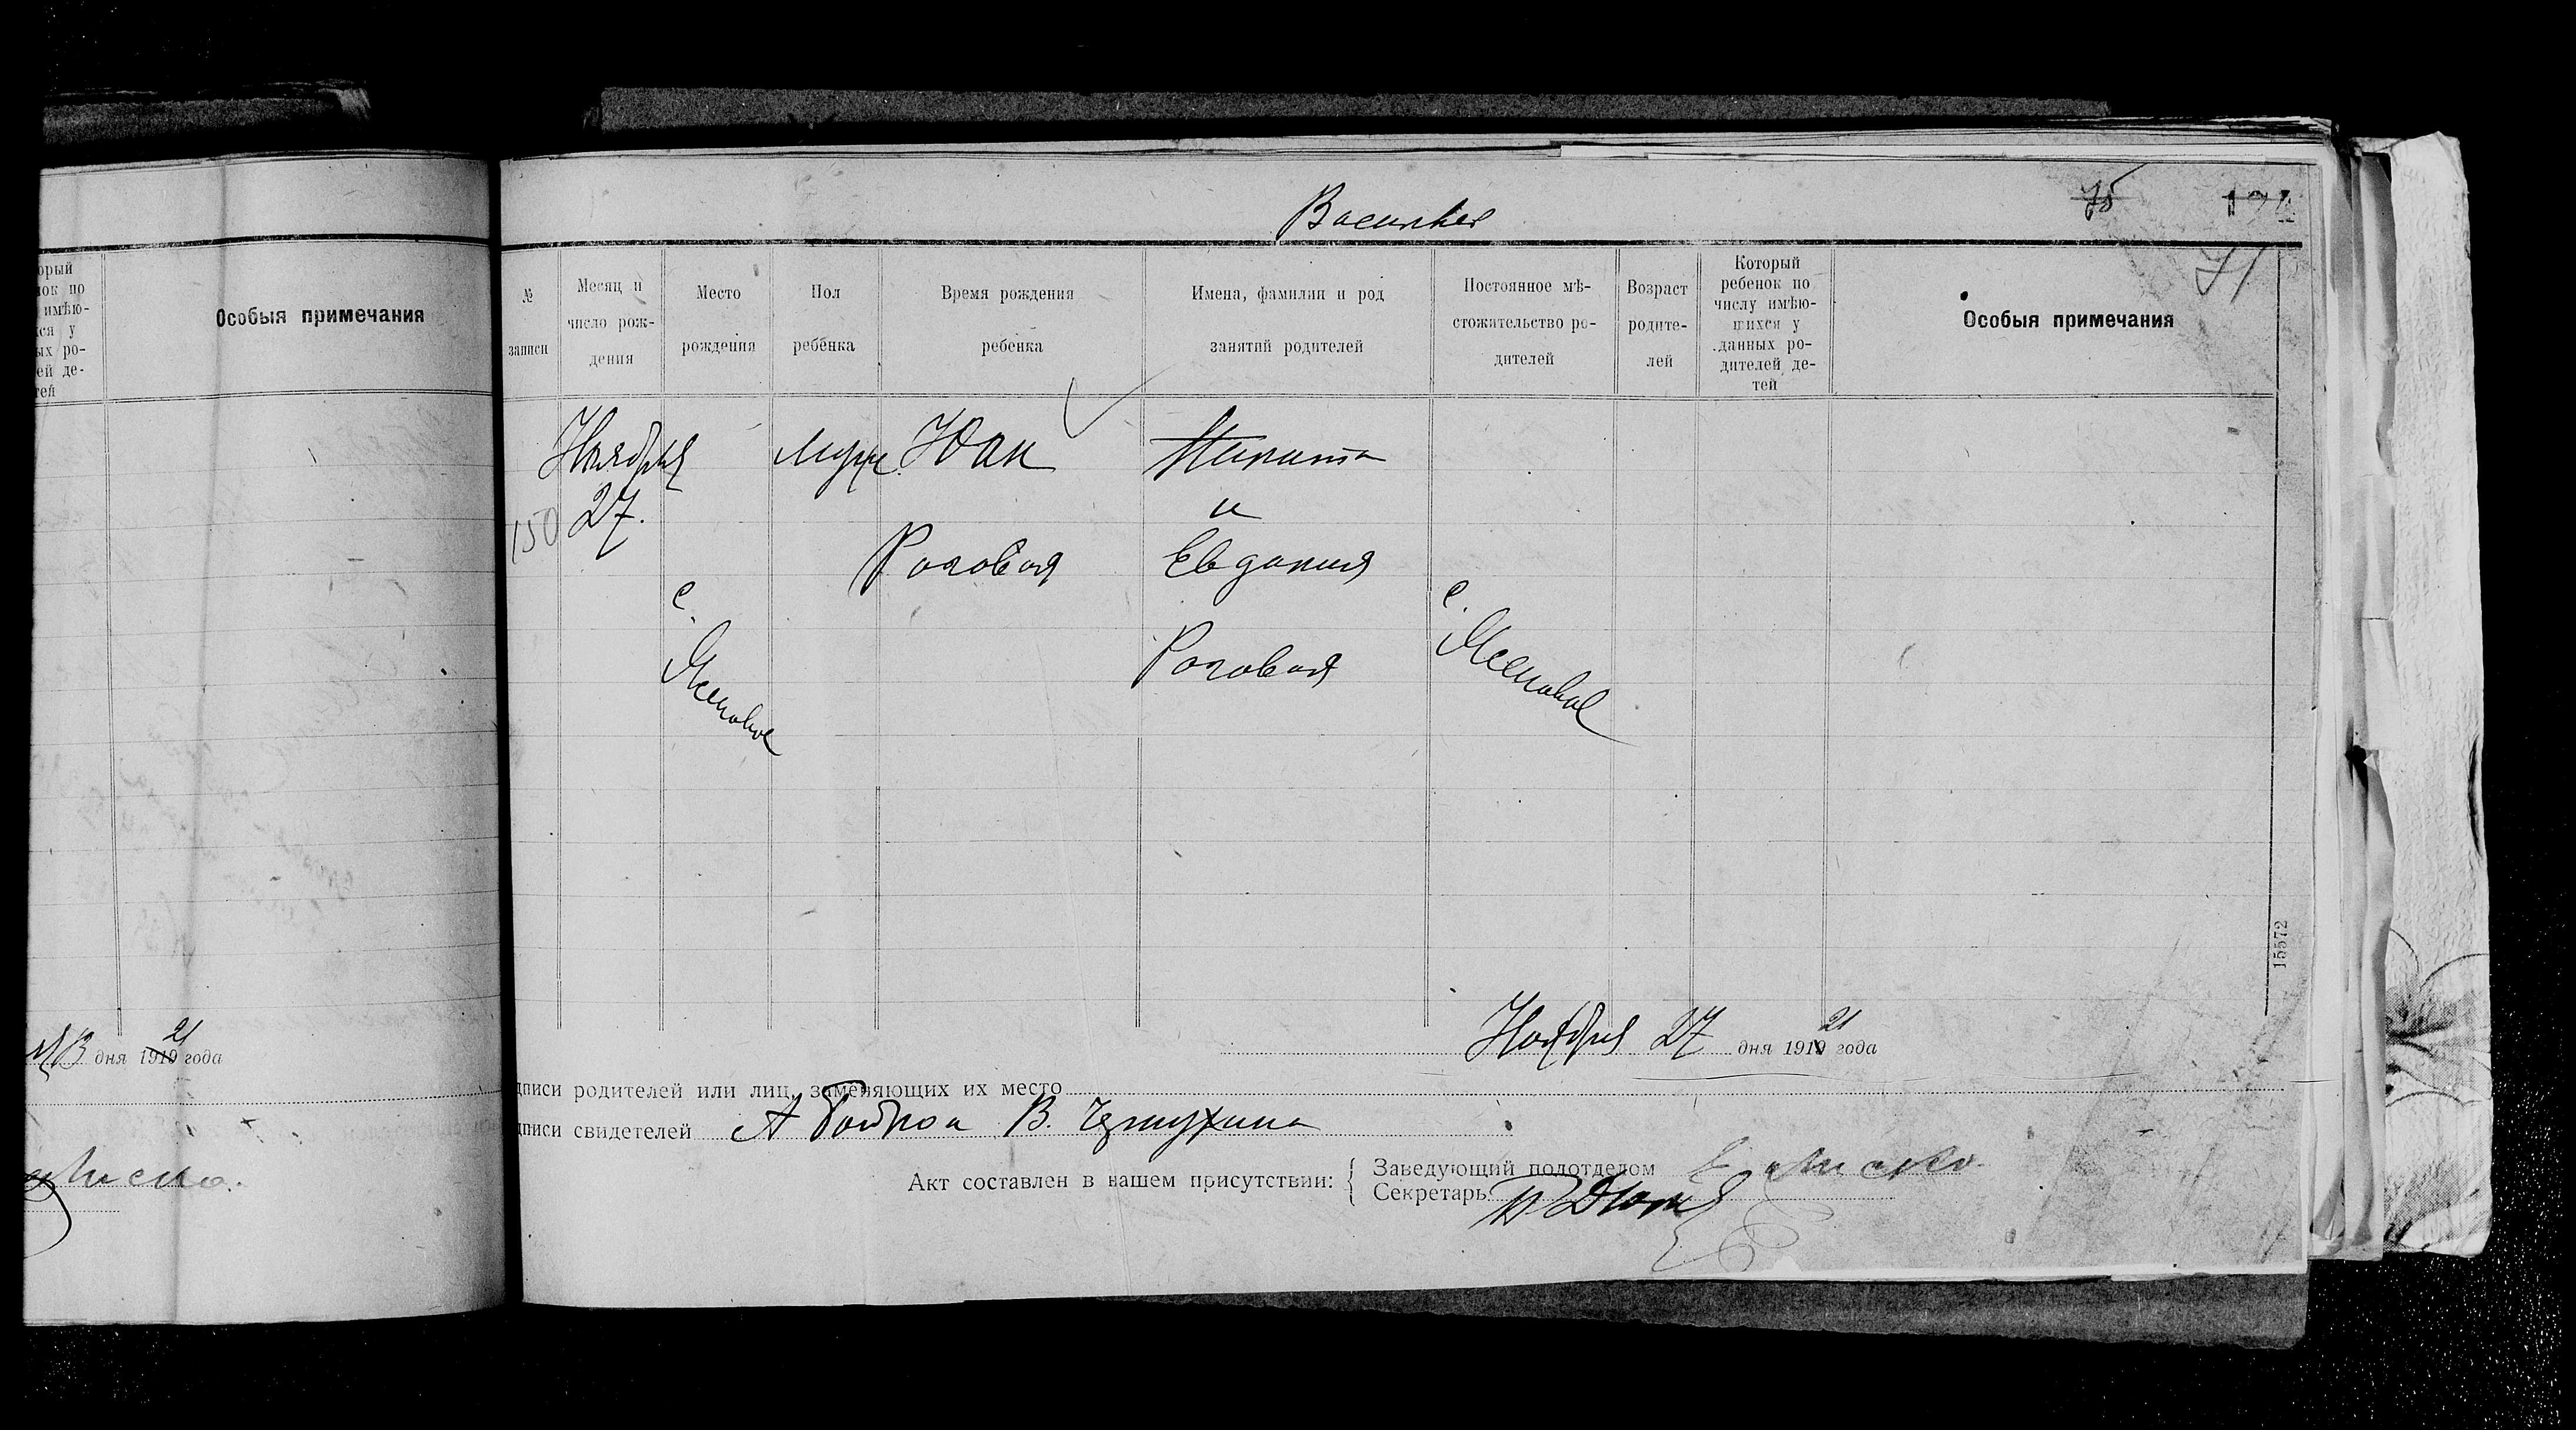 орый
нок по
имѣю-
хся у
ых ро-
ей де-
тей
Особыя примечания
21
13 дня 1919 года
75
71
№
записи
Месяц и
число рож-
дения
Место
рождения
Пол
ребёнка
Время рождения
ребенка
Имена, фамилии и род
занятий родителей
Постоянное мѣ-
стожительство ро-
дителей
Возраст
родите-
лей
Который
ребенок по
числу имѣю-
щихся у
данных ро-
дителей де-
тей
Особыя примечания
150
Ноября
27.
с.
Ясеновое
муж.
Юан
Роговая
Никита
и
Евдокия
Роговая
с.
Ясеновое
15572
21
Ноября 27 дня 1919 года
дписи родителей или лиц, заменяющих их место
дписи свидетелей А В.
Акт составлен в нашем присутствии:
Заведующий подотделом
Секретарь